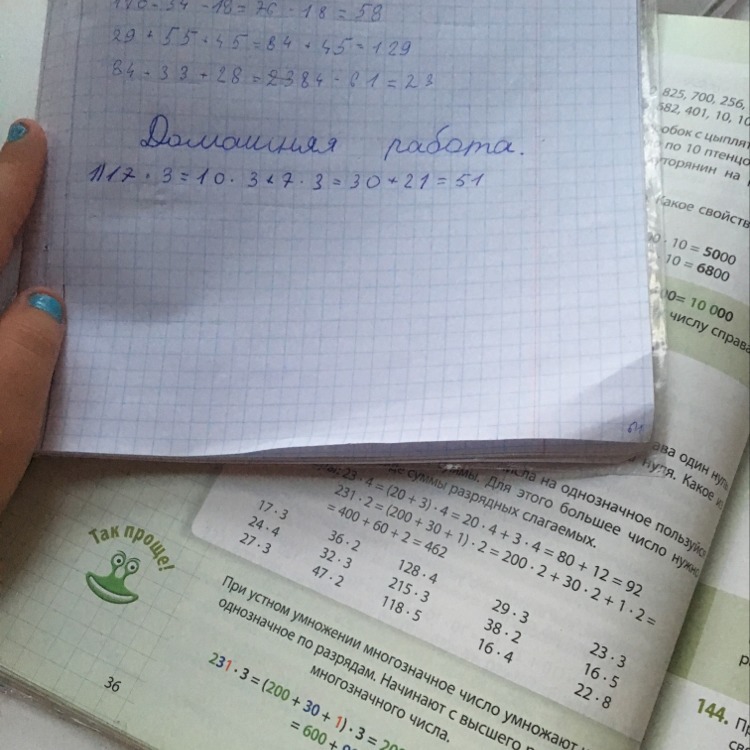 - 18 = 76 - 18 = 58
29 + 55 + 45 = 84 + 45 = 129
84 - 33 + 28 = 2384 - 61 = 23
Домашняя работа.
1) 17 · 3 = 10 · 3 + 7 · 3 = 30 + 21 = 51
825, 700, 256,
682, 401, 10,
с цыплят
по 10 птенцо
на
Какое свойств
· 10 = 5000
· 10 = 6800
= 10 000
числу справа
один нуль
нуля. Какое
на однозначное пользуйся
Для этого большее число нужно
суммы разрядных слагаемых.
23 · 4 = (20 + 3) · 4 = 20 · 4 + 3 · 4 = 80 + 12 = 92
231 · 2 = (200 + 30 + 1) · 2 = 200 · 2 + 30 · 2 + 1 · 2 =
= 400 + 60 + 2 = 462
17 · 3 36 · 2 128 · 4 29 · 3 23 · 3
24 · 4 32 · 3 215 · 3 38 · 2 16 · 5
27 · 3 47 · 2 118 · 5 16 · 4 22 · 8
Так проще!
При устном умножении многозначное число умножают
однозначное по разрядам. Начинают с высшего
многозначного числа.
231 · 3 = (200 + 30 + 1) · 3 =
= 600 +
36
144.